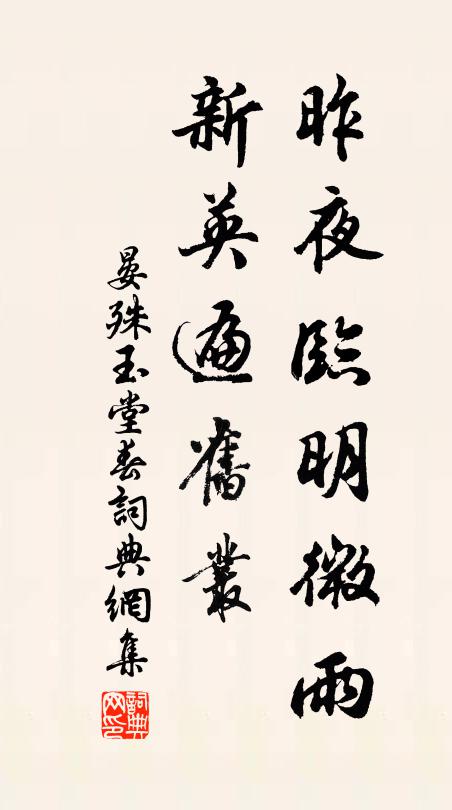 昨夜臨明微雨
新英遍舊叢
晏殊玉堂春詞典網集
詞典网印